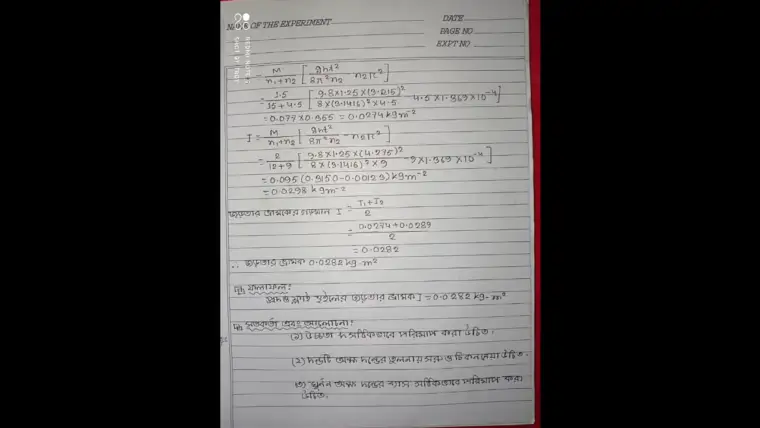 NAME OF THE EXPERIMENT
DATE
PAGE NO
EXPT NO
= M/n₁+n₂ [ght²/8π²n₂ - n₂πr²]
= 1.5/15+4.5 [9.8×1.25×(3.215)²/8×(3.1416)²×4.5 - 4.5×1.369×10⁻⁴]
= 0.077×0.355 = 0.0274 kgm⁻²
I = M/n₁+n₂ [ght²/8π²n₂ - n₂πr²]
= 2/12+9 [9.8×1.25×(4.275)²/8×(3.1416)²×9 - 9×1.369×10⁻⁴]
= 0.095(0.3150-0.00123) kgm⁻²
= 0.0298 kgm⁻²
জড়তার ভ্রামকের গড়মান I = I₁+I₂/2
= 0.0274+0.0289/2
= 0.0282
∴ জড়তার ভ্রামক 0.0282 kg-m²
ফলাফল:
প্রদত্ত ফ্লাই হুইলের জড়তার ভ্রামক I = 0.0282 kg-m²
সতর্কতা এবং আলোচনা:
(১) উচ্চতা সঠিকভাবে পরিমাপ করা উচিত.
(২) দড়িটি অক্ষ দন্ডের তুলনায় সরু ও চিকন নেয়া উচিত.
(৩) ঘূর্ণন অক্ষ দন্ডের ব্যাস সঠিকভাবে পরিমাপ করা
উচিত.